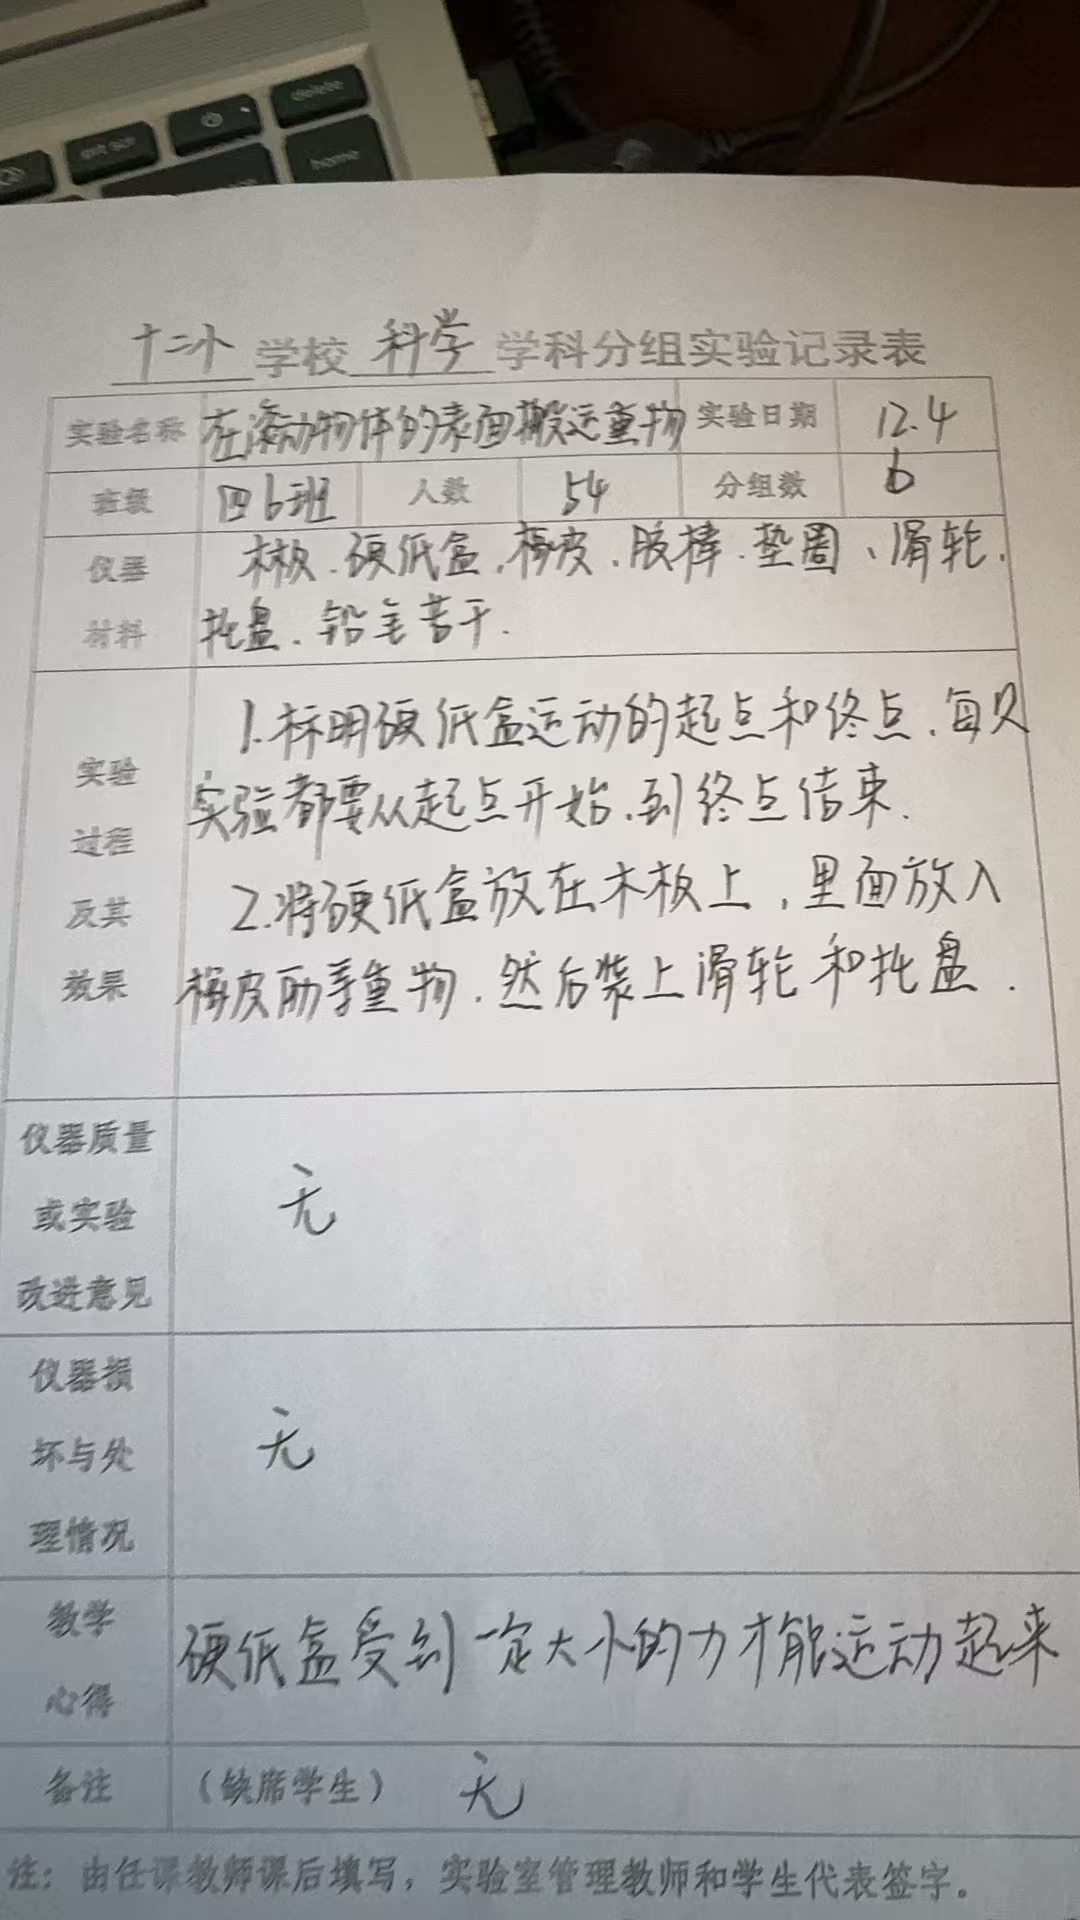 delete
home
十二小 学校 科学 学科分组实验记录表
实验名称 在滚动物体的表面搬运重物 实验日期 12.4
班级 四6班 人数 54 分组数 6
仪器 木板、硬低盒、橡皮、胶棒、垫圈、滑轮、
材料 托盘、铅笔若干.
1.标明硬低盒运动的起点和终点.每只
实验 实验都要从起点开始.到终点结束.
过程
及其 2.将硬低盒放在木板上,里面放入
效果 橡皮 重物.然后装上滑轮和托盘.
仪器质量
或实验 无
改进意见
仪器损
坏与处 无
理情况
教学 硬低盒受到一定大小的力才能运动起来
心得
备注 (缺席学生) 无
注:由任课教师课后填写,实验室管理教师和学生代表签字。